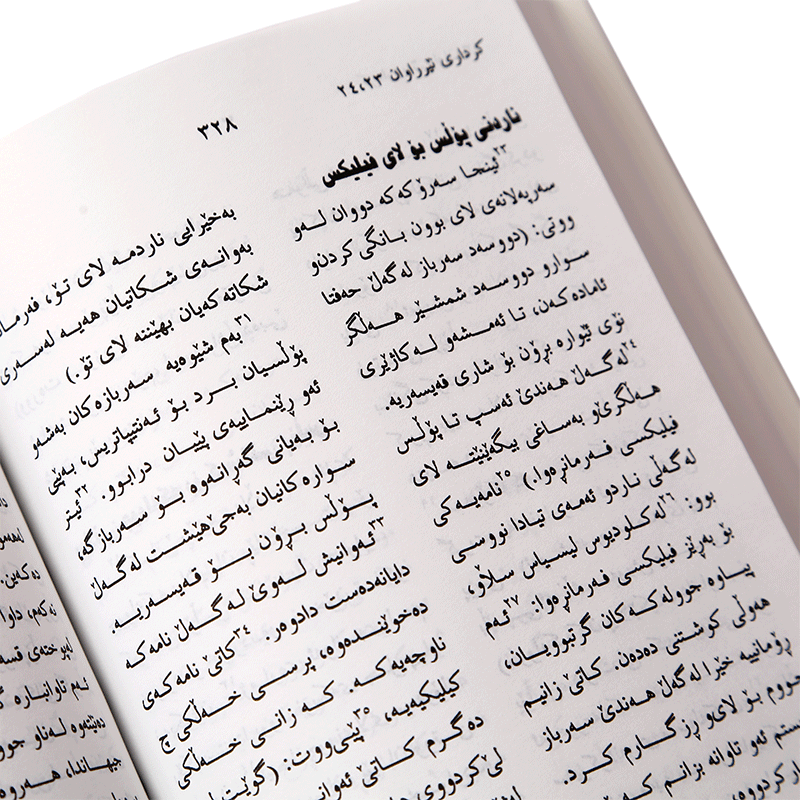 کرداری نێرراوان ٢٤،٢٣
٣٢٨
ناردنی پۆڵس بۆ لای فیلیکس
٢٣ئینجا سەرۆکەکە دووان لەو
سەرپەلانەی لای بوون بانگی کردن‌و
ووتی: (دووسەد سەرباز لەگەڵ حەفتا
سوارو دووسەد شمشێر هەڵگر
ئامادەکەن، تا ئەمشەو لە کاژێری
نۆی ئێوارە بڕۆن بۆ شاری قەیسەریە.
٢٤لەگەڵ هەندێ ئەسپ تا پۆڵس
هەڵگرێ‌و بەساغی بیگەێنێتە لای
فیلیکسی فەرمانڕەوا.) ٢٥نامەیەکی
لەگەڵی ناردو ئەمەی تیادا نووسی
بوو: ٢٦لەکلودیوس لیسیاس سڵاو،
بۆ بەڕێز فیلیکسی فەرمانڕەوا: ٢٧ئەم
پیاوە جوولەکەکان گرتبوویان،
هەوڵی کوشتنی دەدەن. کاتێ زانیم
ڕۆمانیە خێرا لەگەڵ هەندێ سەرباز
چووم بۆ لای‌و ڕزگارم کرد.
ئەو تاوانە بزانم کە
بەخێرایی ناردمە لای تۆ، فەرما
بەوانەی شکاتیان هەیە لەسەری
شکاتەکەیان بهێننە لای تۆ.)
٣١بەم شێوەیە سەربازەکان بەشەو
پۆڵسیان برد بۆ ئەنتیپاتریس، بەپێی
ئەو ڕێنماییەی پێیان درابوو. ٣٢ئیتر
بۆ بەیانی گەڕانەوە بۆ سەربازگە،
سوارەکانیان بەجێ‌هێشت لەگەڵ
پۆڵس بڕۆن بۆ قەیسەریە.
٣٣ئەوانیش لەوێ لەگەڵ نامەکە
دایانەدەست دادوەر. ٣٤کاتێ نامەکەی
دەخوێندەوە، پرسی خەڵکی چ
ناوچەیەکە. کە زانی خەڵکی
کیلیکیەیە، ٣٥پێی‌ووت: (گوێت
دەگرم کاتێ